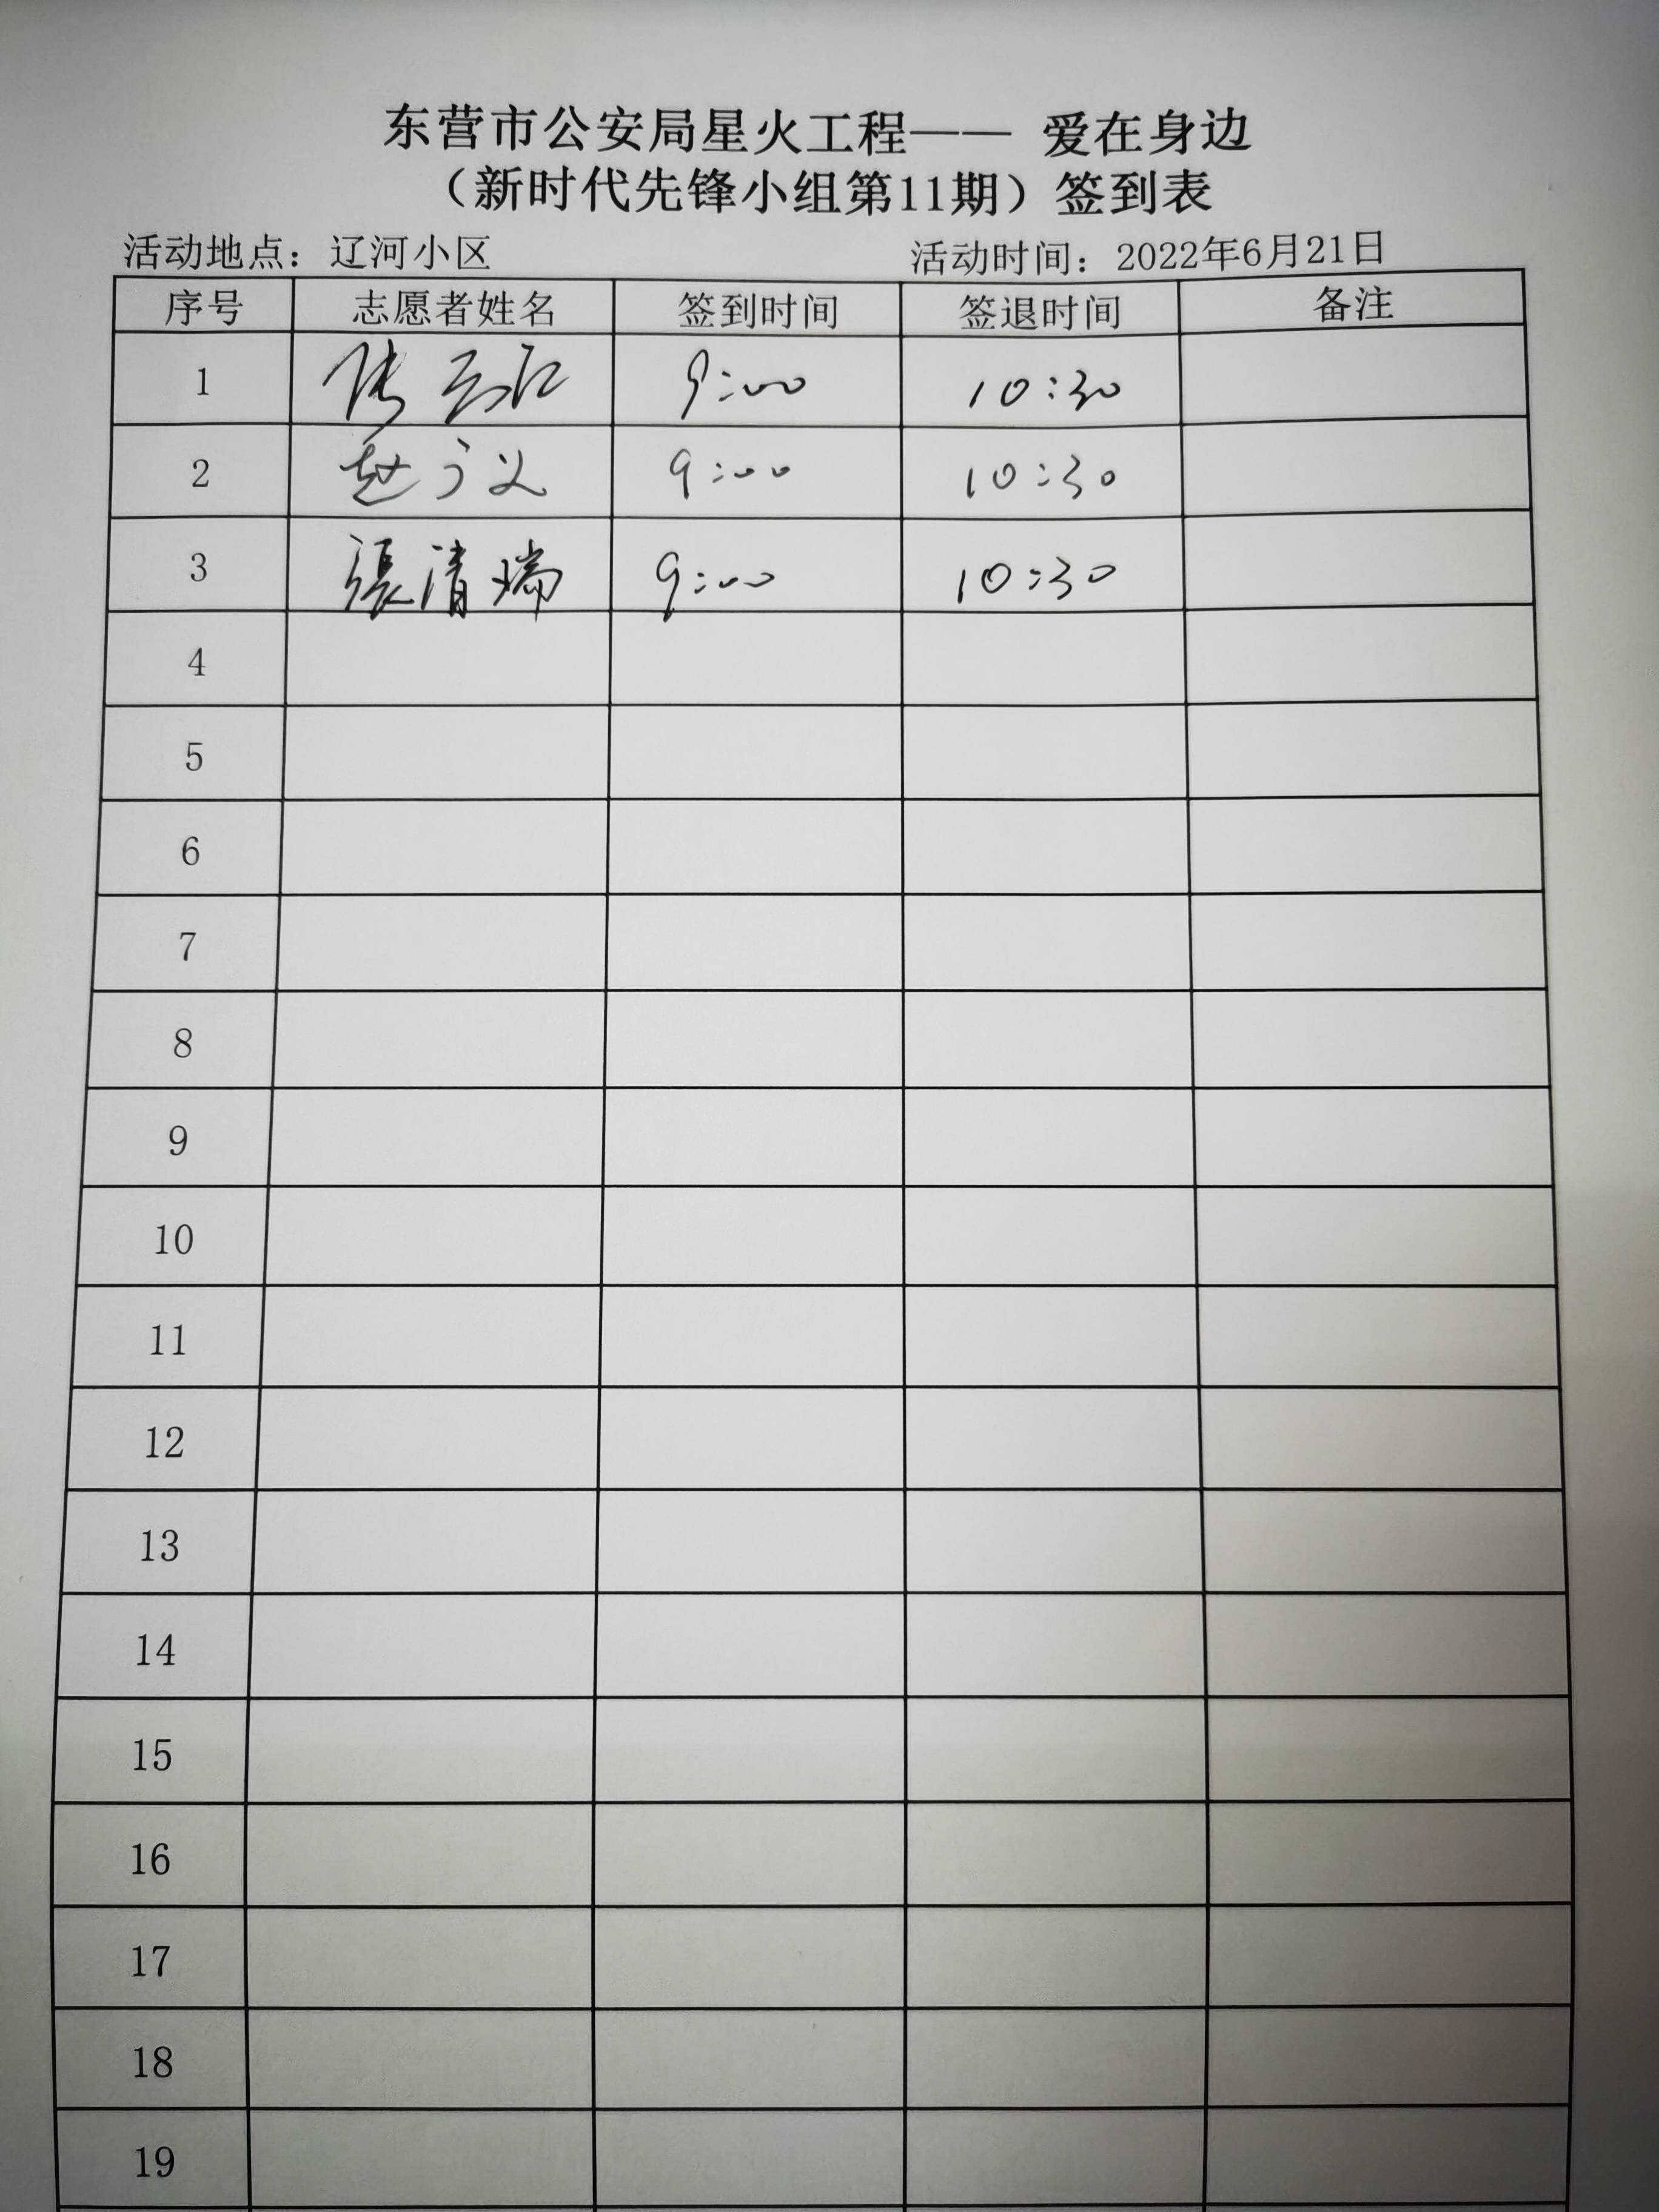 东营市公安局星火工程—— 爱在身边
（新时代先锋小组第11期）签到表
活动地点：辽河小区 活动时间：2022年6月21日
序号 志愿者姓名 签到时间 签退时间 备注
1 张 9:00 10:30
2 赵 义 9:00 10:30
3 張清瑞 9:00 10:30
4
5
6
7
8
9
10
11
12
13
14
15
16
17
18
19